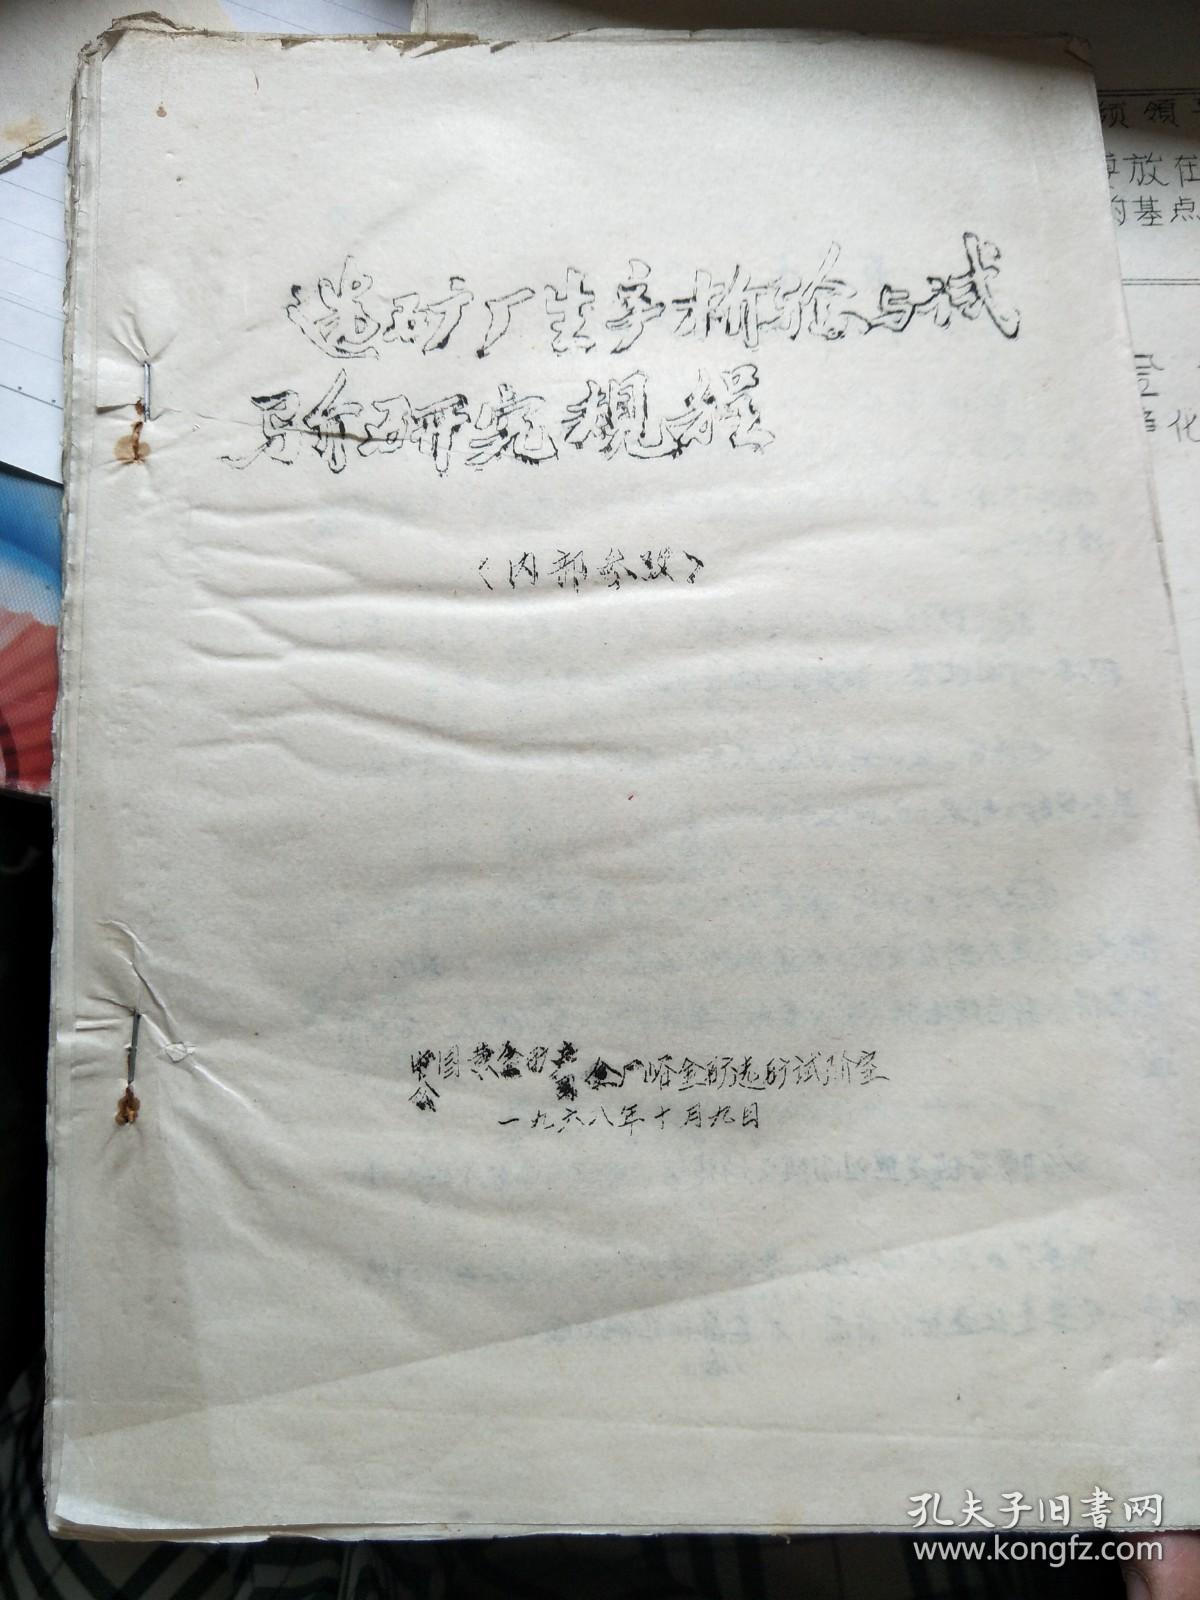 选矿厂生产检验与试
验研究规程
〈内部参考〉
中国黄金矿产公司金厂峪金矿选矿试验室
一九六八年十月九日
须领
放在
的基点
化
孔夫子旧书网
www.kongfz.com